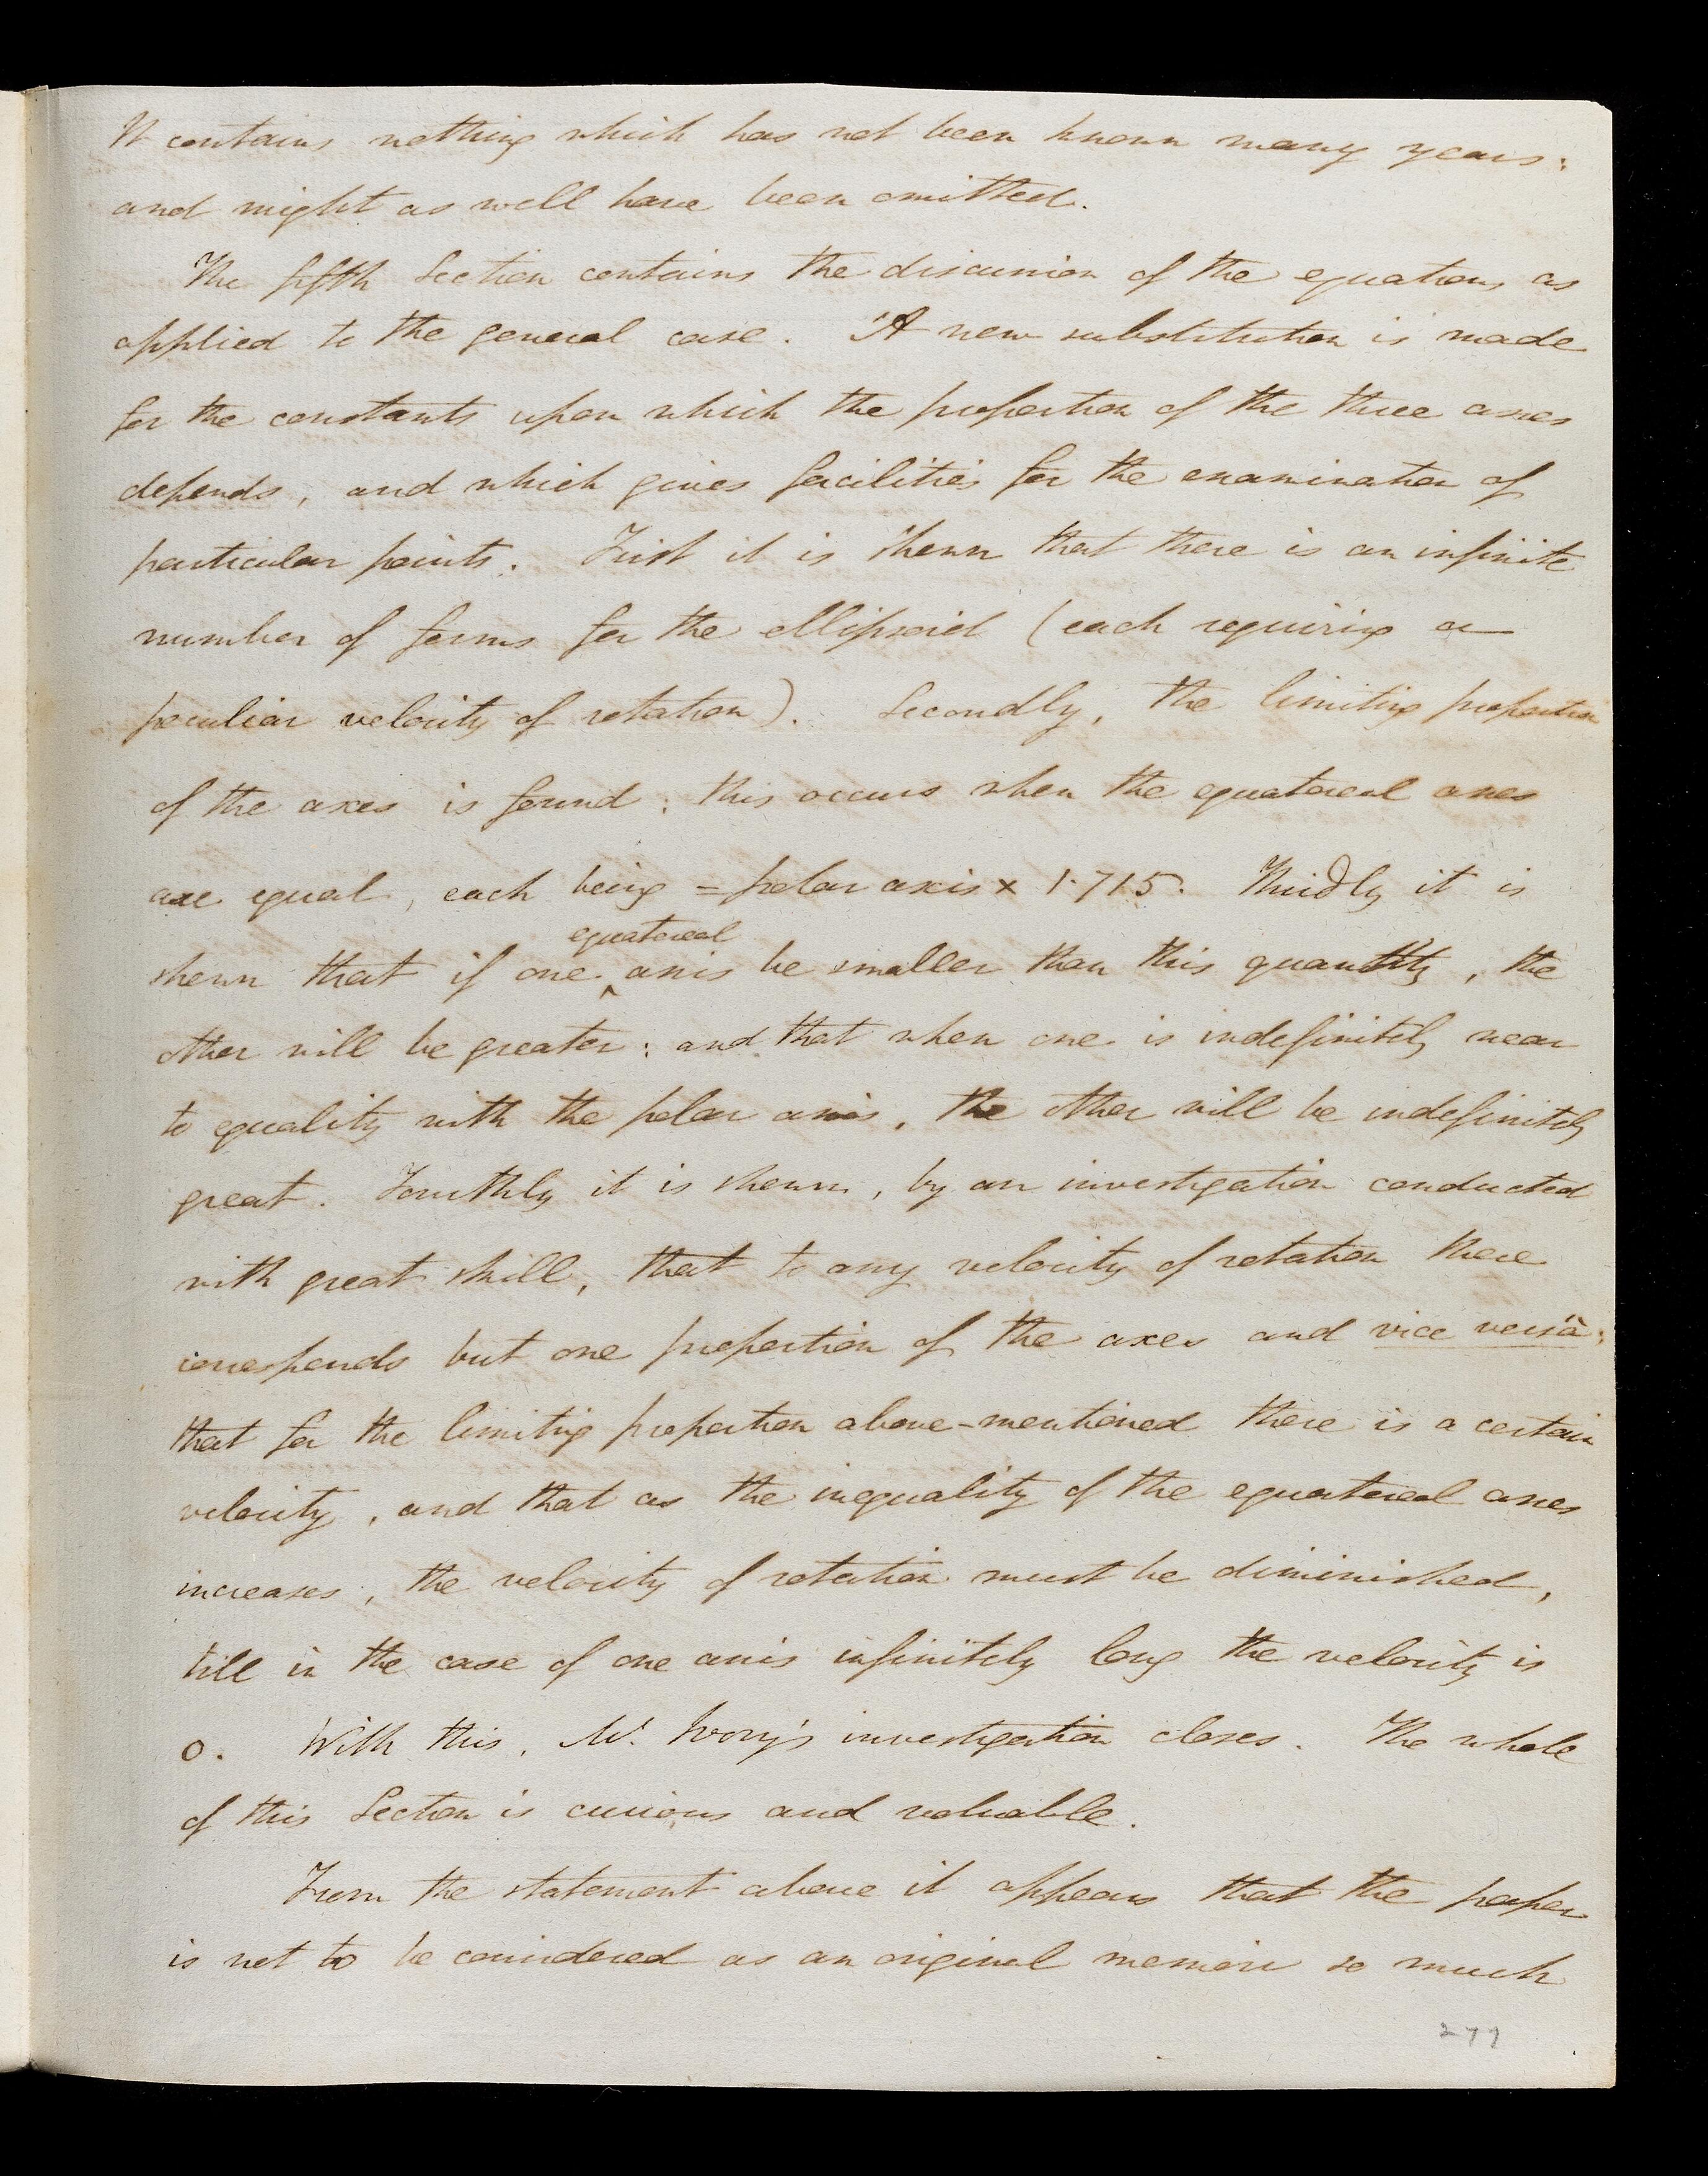 It contains nothing which has not been known many years:
and might as well have been omitted.
The fifth Section contains the discussion of the equations as
applied to the general case. A new substitution is made
for the constants upon which the proportion of the three axes
depends, and which gives facilities for the examination of
particular points. First it is shewn that there is an infinite
number of forms for the ellipsoid (each requiring a
peculiar velocity of rotation). Secondly, the limiting proportion
of the axes is found: this occurs when the equatoreal axes
are equal, each being = polar axis × 1.715. Thirdly it is
equatoreal
shewn that if one ‸ axis be smaller than this quantity, the
other will be greater: and that when one is indefinitely near
to equality with the polar axis, the other will be indefinitely
great. Fourthly it is shewn, by an investigation conducted
with great skill, that to any velocity of rotation there
corresponds but one proportion of the axes and vice versâ:
that for the limiting proportion above-mentioned there is a certain
velocity, and that as the inequality of the equatoreal axes
increases, the velocity of rotation must be diminished,
till in the case of one axis infinitely long the velocity is
0. With this, Mr. Ivory's investigation closes. The whole
of this Section is curious and valuable.
From the statement above it appears that the paper
is not to be considered as an original memoir so much
277